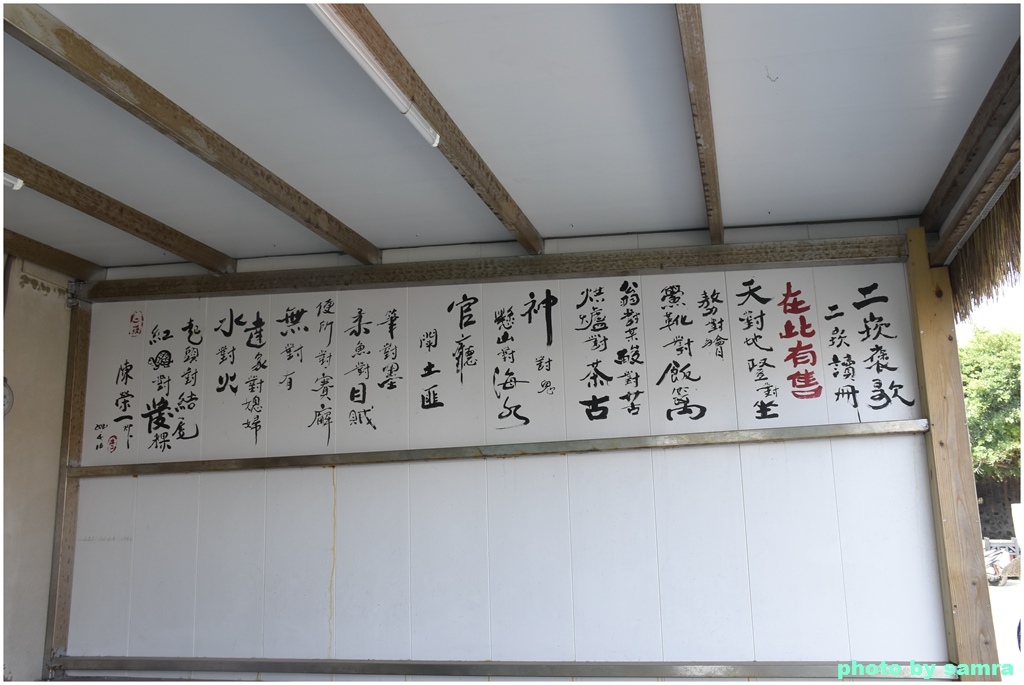 二崁褒歌
二崁讀冊
在此有售
天對地豎對坐
熬對膾
黑靴對飯篱
翁對某破對苦
烘爐對茶古
神對鬼
懸山對海水
官廳
鬧土匪
筆對墨
柔魚對目賊
便所對賽廨
無對有
達家對媳婦
水對火
起頭對結尾
紅龜對發粿
陳榮一作
2021
4.10
photo by samra